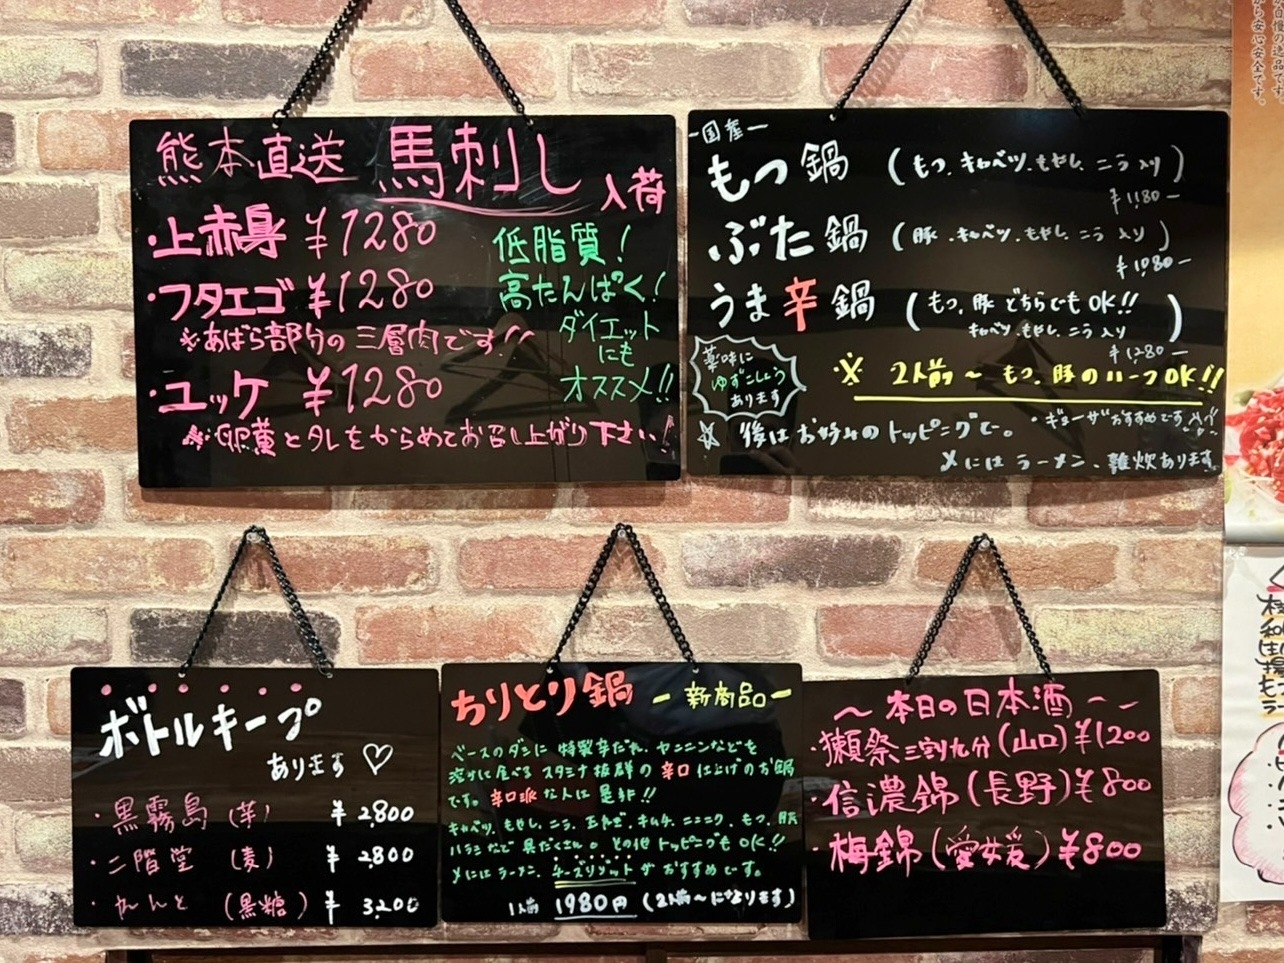 熊本直送 馬刺し 入荷
・上赤身 ¥1280
・フタエゴ ¥1280
※あばら部分の三層肉です!!
・ユッケ ¥1280
※卵黄とタレをからめてお召し上がり下さい!
低脂質!
高たんぱく!
ダイエット
にも
オススメ!!
ー国産ー
もつ鍋 (もつ、キャベツ、もやし、ニラ入り)
¥1180-
ぶた鍋 (豚、キャベツ、もやし、ニラ入り)
¥1080-
うま辛鍋 (もつ、豚どちらでもOK!!
キャベツ、もやし、ニラ入り)
¥1280-
薬味に
ゆずこしょう
あります
※ 2人前~ もつ、豚のハーフOK!!
☆ 後はお好みのトッピングで。
・ギョーザおすすめです
〆にはラーメン、雑炊あります
ボトルキープ
あります♡
・黒霧島 (芋) ¥2,800
・二階堂 (麦) ¥2,800
・れんと (黒糖) ¥3,200
ちりとり鍋 ー新商品ー
ベースのダシに特製辛だれ、ヤンニンなども
溶かし食べるスタミナ抜群の辛口仕上げのお鍋
です。辛口派な人は是非!!
キャベツ、もやし、ニラ、玉ねぎ、キムチ、ニンニク、もつ、豚
ハラミなど具だくさん。その他トッピングもOK!!
〆にはラーメン、チーズリゾットがおすすめです。
1人前 1980円 (2人前~になります)
~本日の日本酒~
・獺祭三割九分(山口)¥1200
・信濃錦(長野)¥800
・梅錦(愛媛)¥800